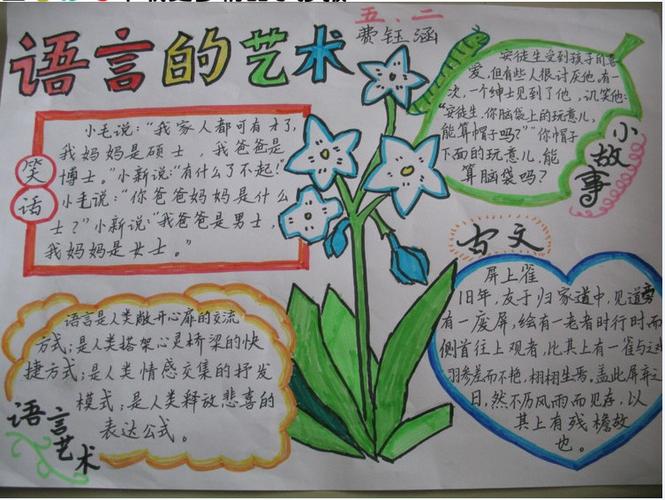 语言的艺术
五、二
费钰涵
笑话
小毛说:“我家人都可有才了,
我妈妈是硕士,我爸爸是
博士。”小新说:“有什么了不起!”
小毛说:“你爸爸妈妈是什么
士?”小新说:“我爸爸是男士,
我妈妈是女士。”
安徒生受到孩子的喜
爱,但有些人很讨厌他,有一
次,一个绅士见到了他,讥笑他:
“安徒生,你脑袋上的玩意儿,
能算帽子吗?”“你帽子
下面的玩意儿,能
算脑袋吗?
小故事
古文
屏上雀
旧年,友于归家道中,见道旁
有一废屏,绘有一老者时行时而
侧首往上观者,比其上有一雀与这
羽参差而不艳,栩栩生焉,盖此屏弃之
日,然不历风雨而见存,以
其上有残檐故
也。
语言是人类敞开心扉的交流
方式;是人类搭架心灵桥梁的快
捷方式;是人类情感交集的抒发
模式;是人类释放悲喜的
表达公式。
语言艺术